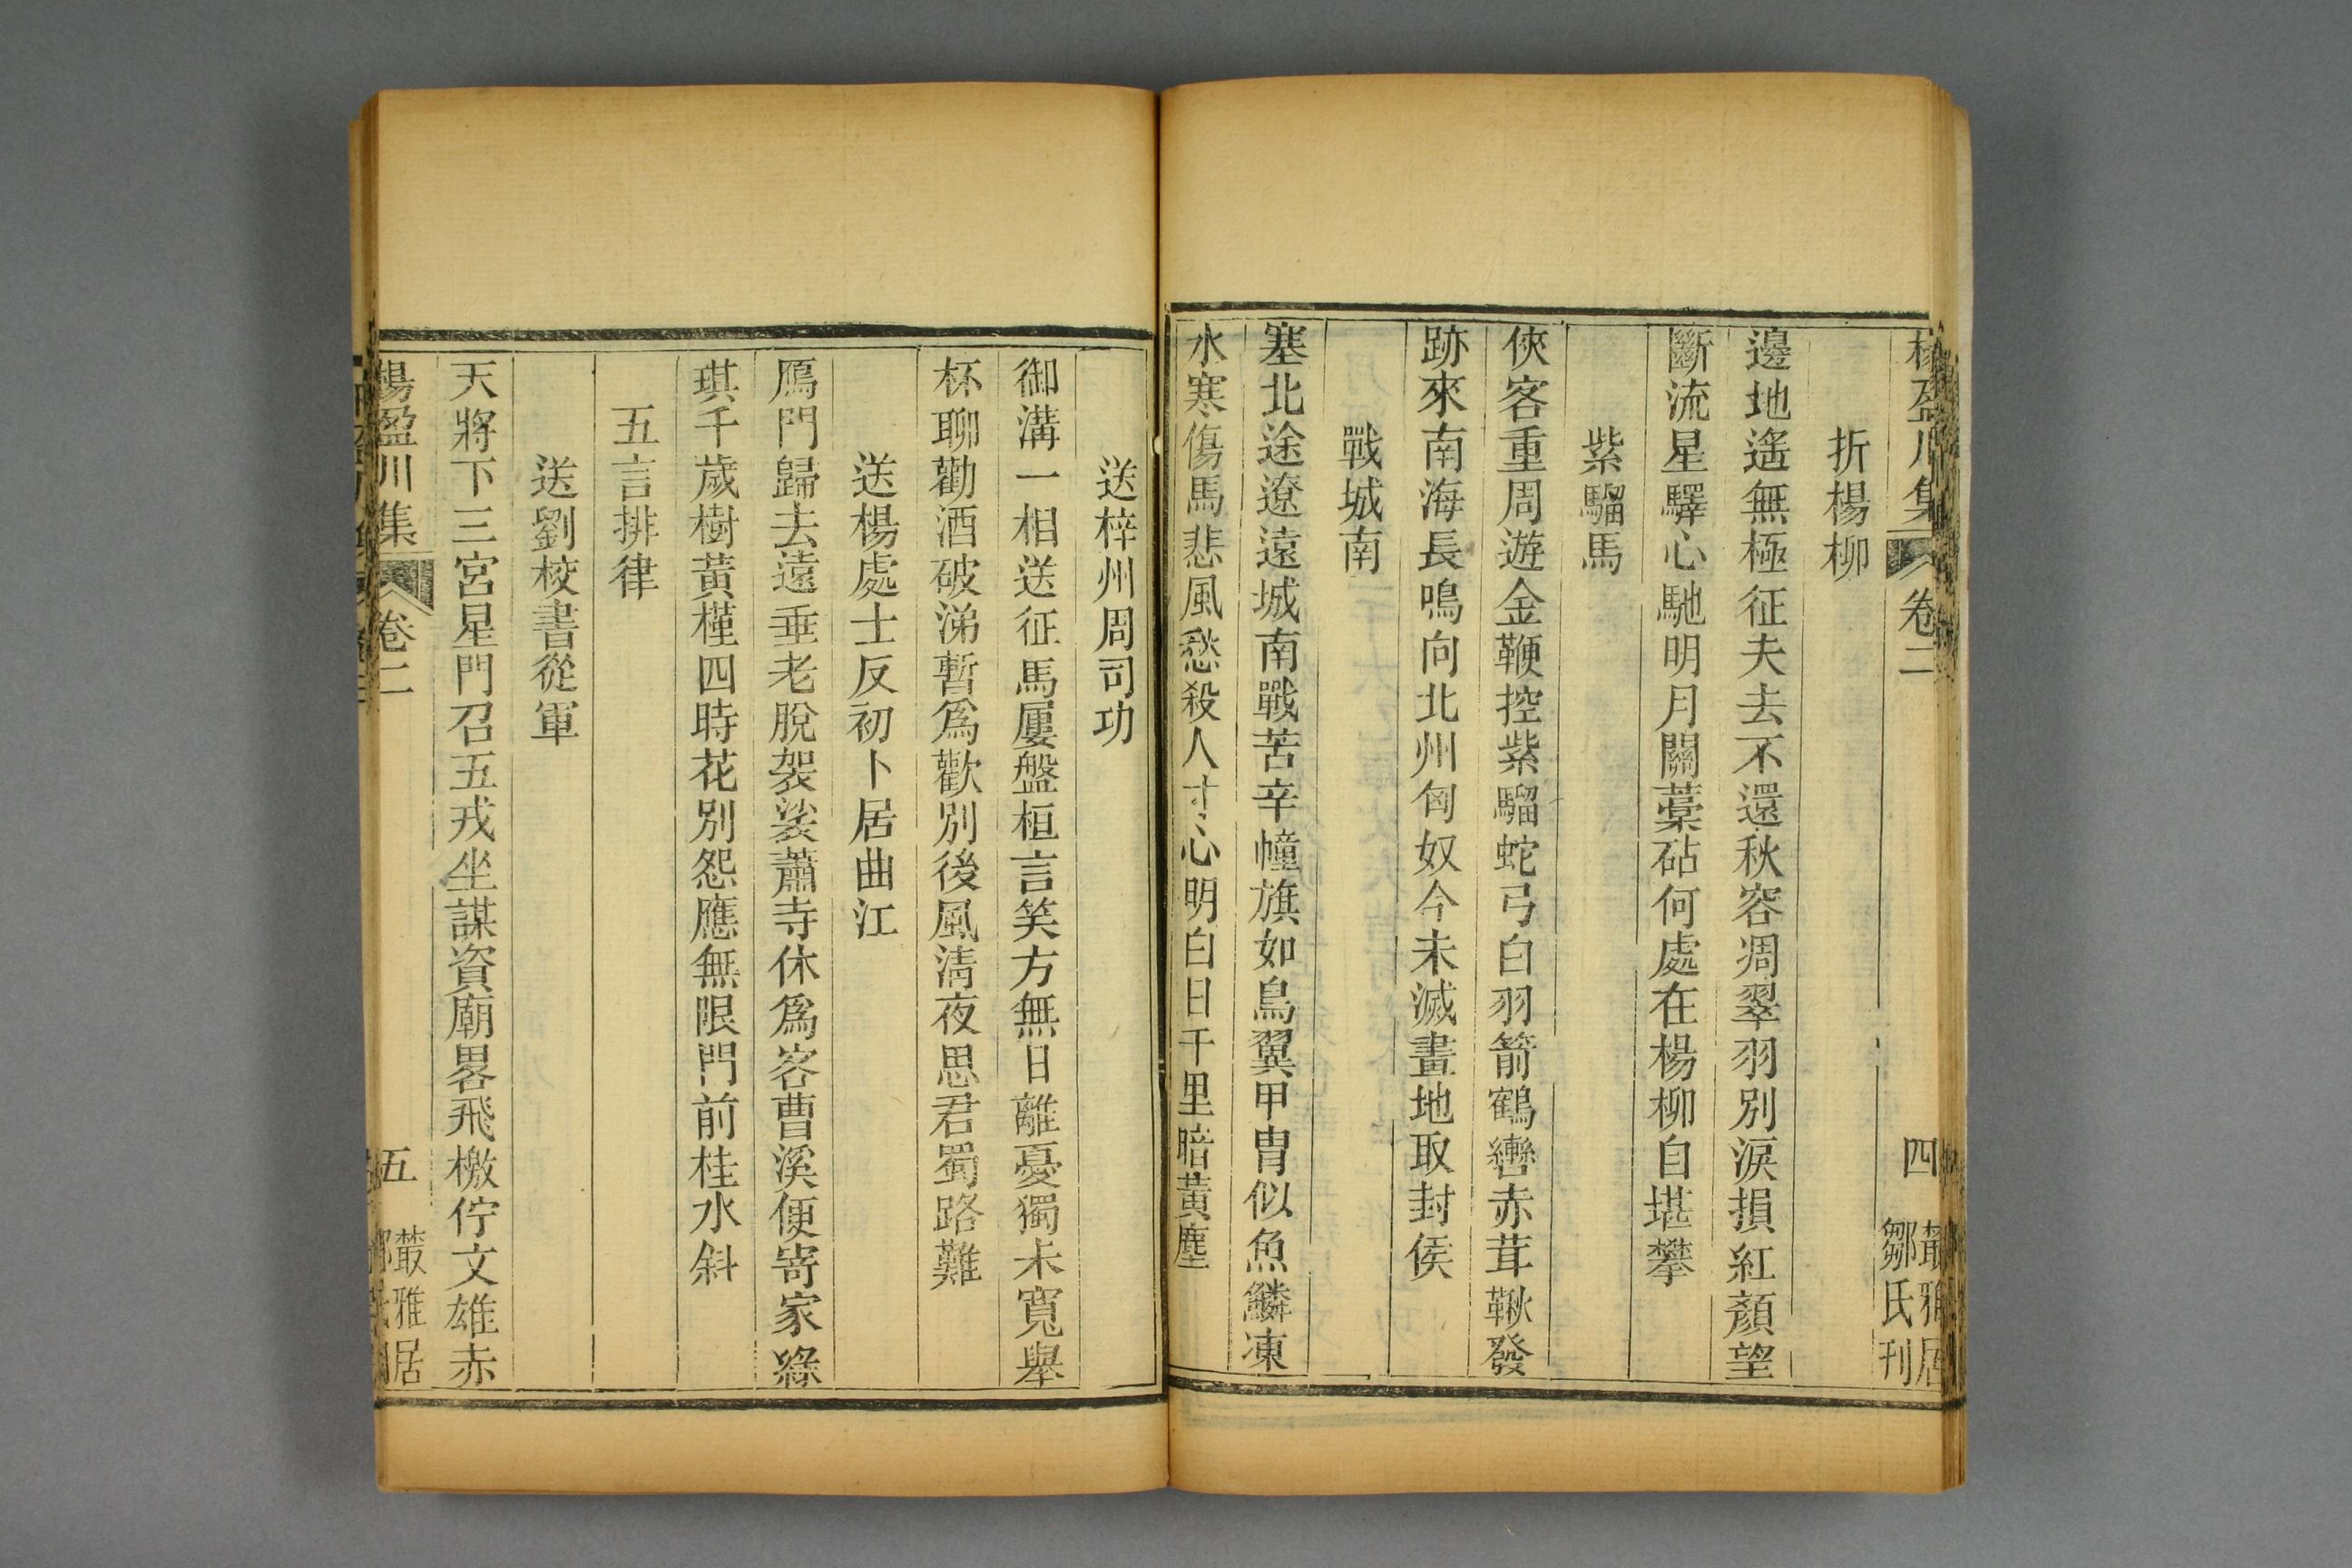 楊盈川集 卷二 四 叢雅居 鄒氏刊
折楊柳
邊地遙無極征夫去不還秋容凋翠羽別淚損紅顏望
斷流星驛心馳明月關藁砧何處在楊柳自堪攀
紫騮馬
俠客重周遊金鞭控紫騮蛇弓白羽箭鶴轡赤茸鞦發
跡來南海長鳴向北州匈奴今未滅畫地取封侯
戰城南
塞北途遼遠城南戰苦辛幡旗如鳥翼甲冑似魚鱗凍
水寒傷馬悲風愁殺人寸心明白日千里暗黃塵
送梓州周司功
御溝一相送征馬屢盤桓言笑方無日離憂獨未寬舉
杯聊勸酒破涕暫爲歡別後風清夜思君蜀路難
送楊處士反初卜居曲江
鴈門歸去遠垂老脫袈裟蕭寺休爲客曹溪便寄家綠
琪千歲樹黃槿四時花別怨應無限門前桂水斜
五言排律
送劉校書從軍
天將下三宮星門召五戎坐謀資廟畧飛檄佇文雄赤
楊盈川集 卷二 五 叢雅居